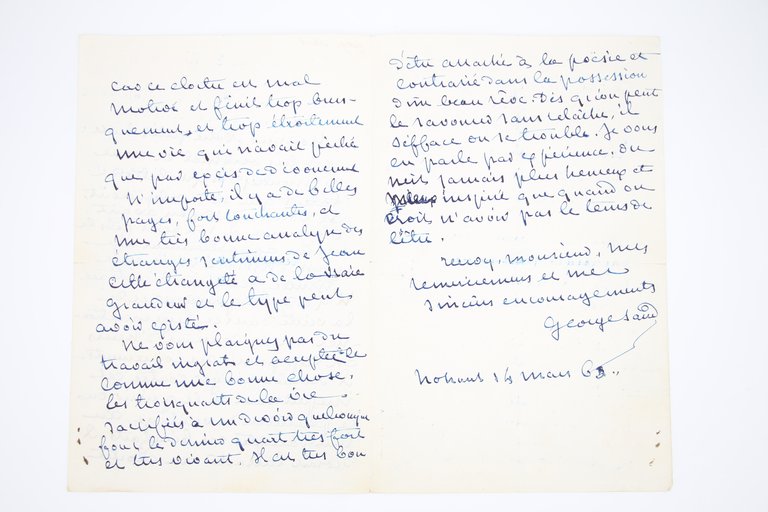 car ce cloître est mal
motivé et finit trop brus-
quement, et trop étroitement
une vie qui n'avait péché
que par excès de dévouement
N'importe, il y a de belles
pages, fort touchantes, et
une très bonne analyse des
étranges sentimens de Jean
cette étrangeté a de la vraie
grandeur et le type peut
avoir existé.
Ne vous plaignez pas du
travail ingrat et acceptez le
comme une bonne chose.
les trois quarts de la vie
sacrifiés à un devoir quelconque
font le dernier quart très fort
et très vivant. Il est très bon
d'être arraché à la poësie et
contrarié dans la possession
d'un beau rêve. Dès qu'on peut
le savourer sans relâche, il
s'efface ou se trouble. Je vous
en parle par expérience. On
n'est jamais plus heureux et
inspiré que quand on
croit n'avoir pas le tems de
l'être.
recevez, monsieur, mes
remerciemens et mes
sincères encouragements
George Sand
Nohant 14 mars 63.